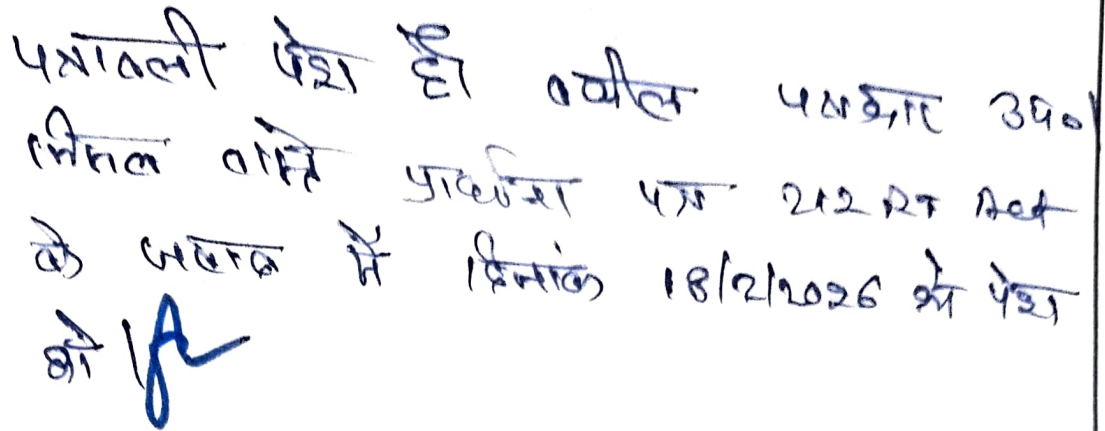 पत्रावली पेश हो वकील पक्षकार उप०।
मिसल वास्ते प्रार्थना पत्र 212 RT Act
के जवाब में दिनांक 18/2/2026 को पेश
हो।